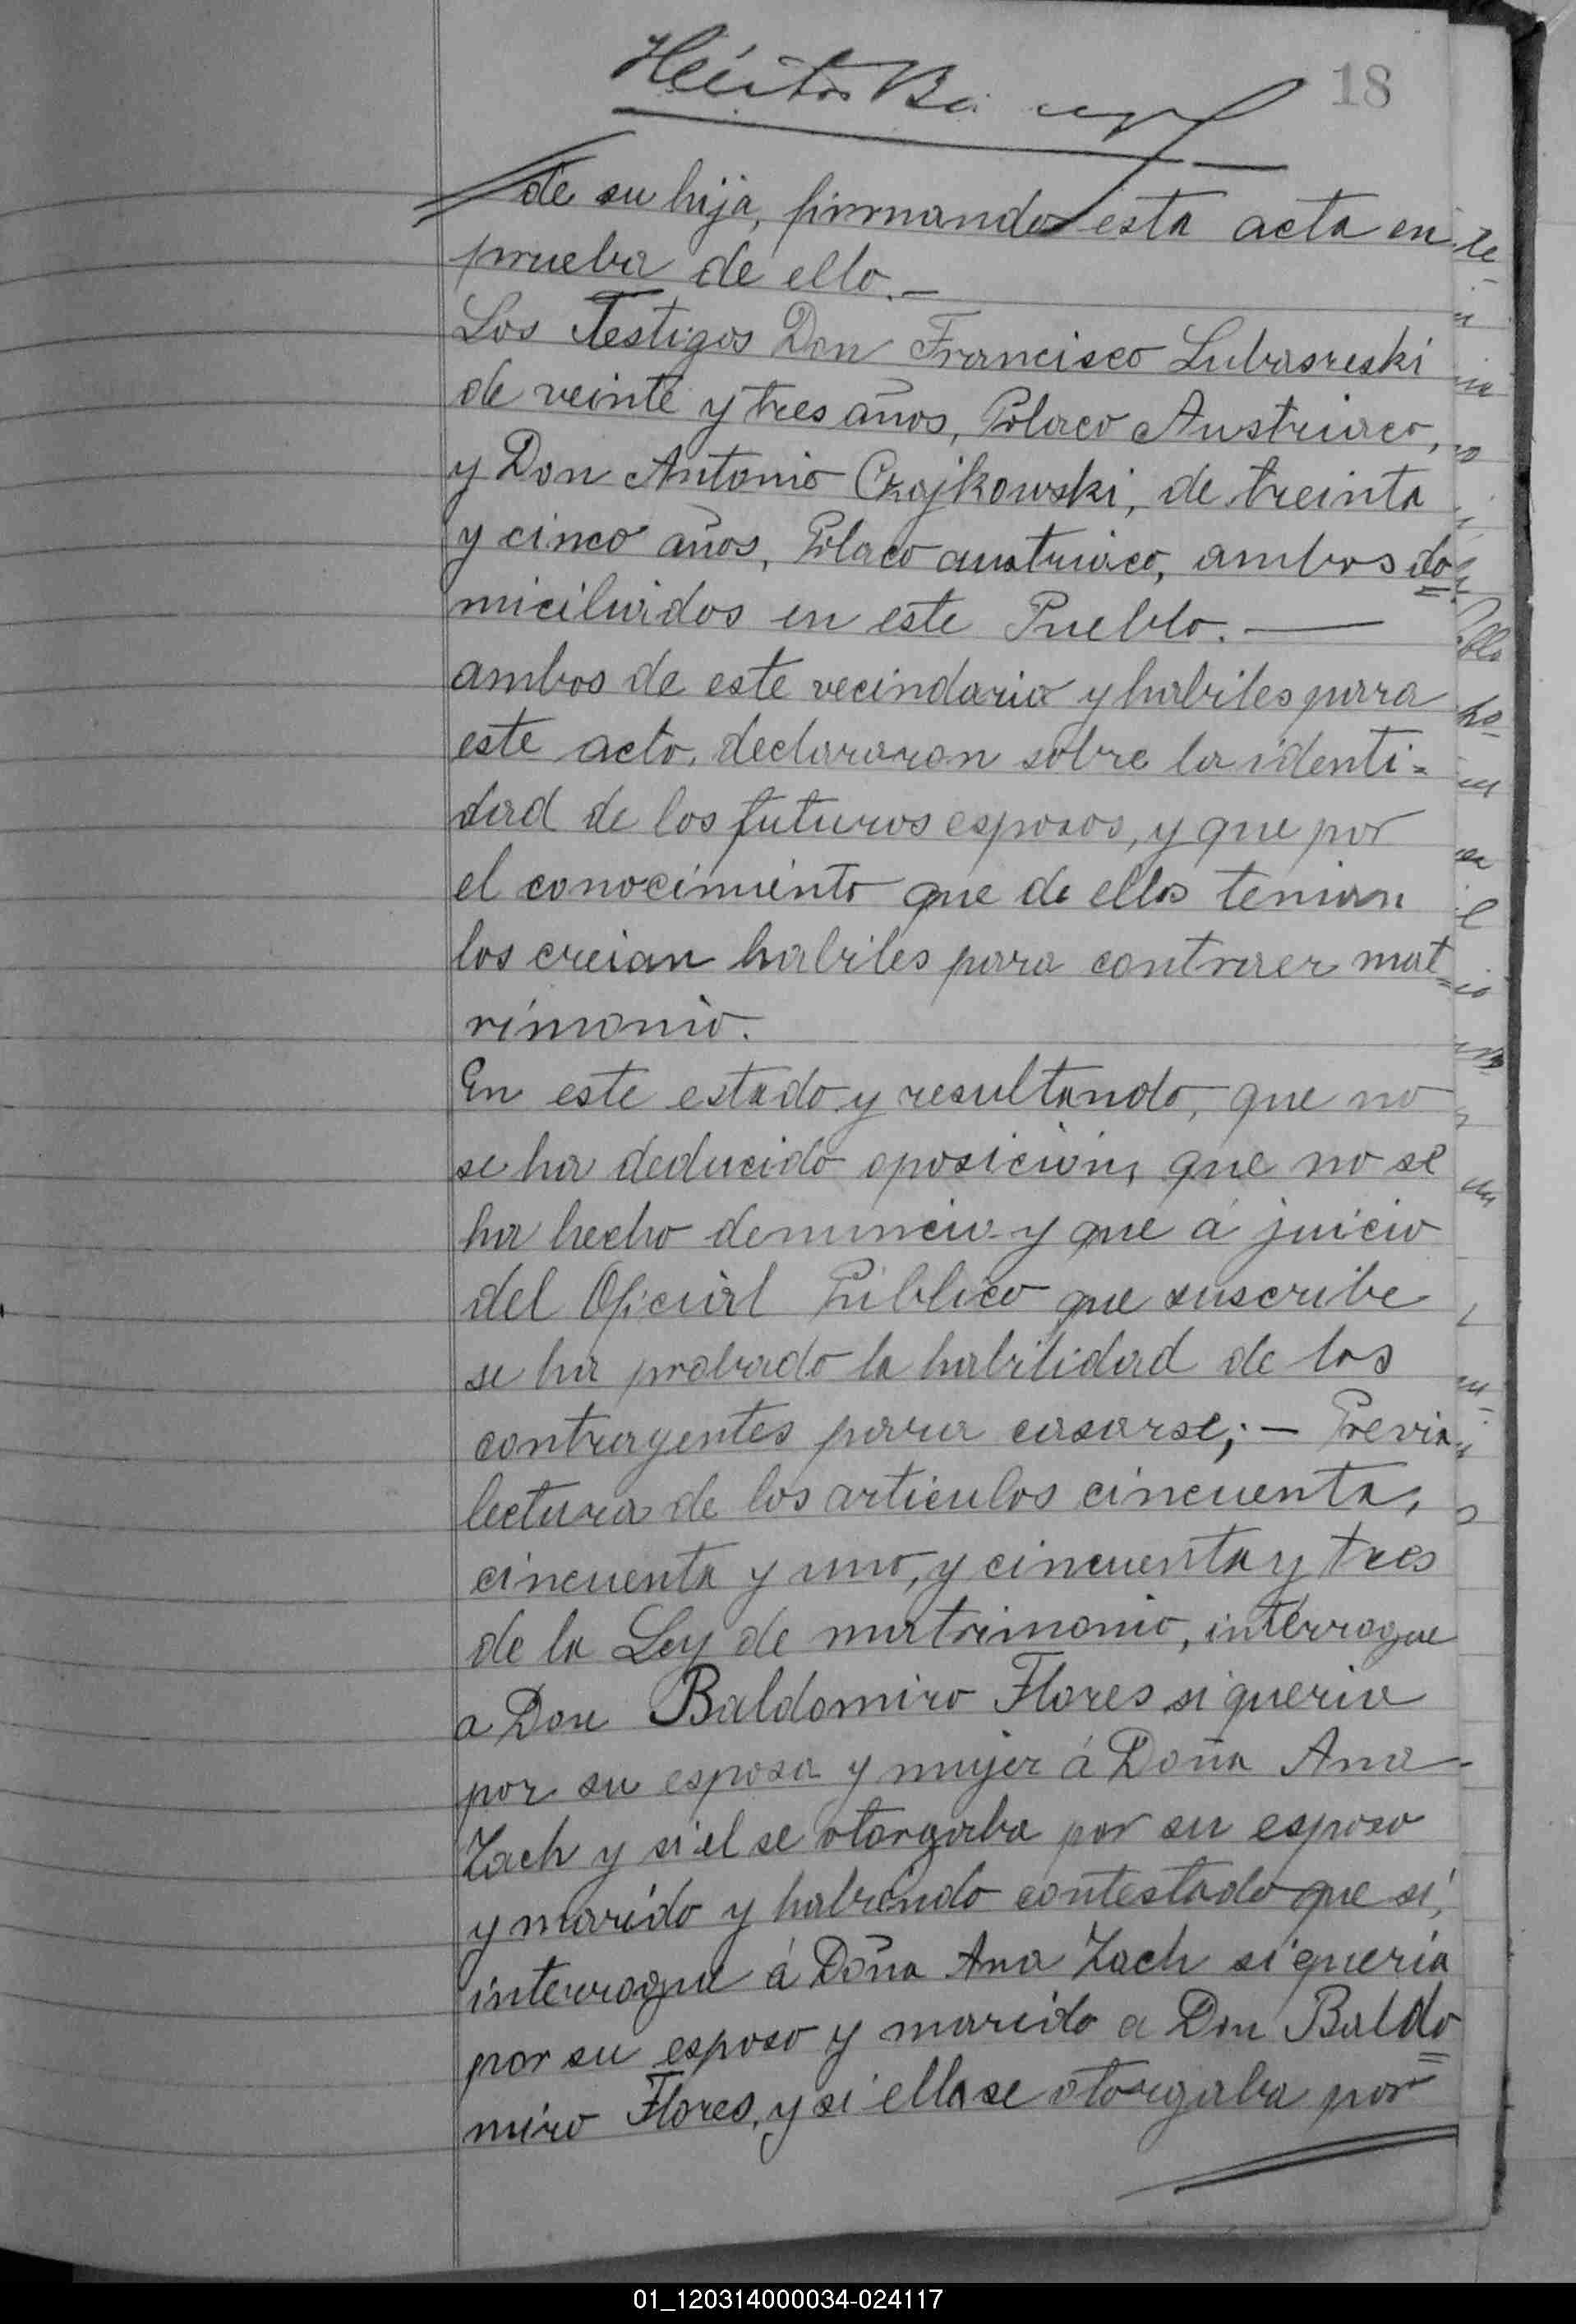 18
de su hija, firmando esta acta en
prueba de ello.—
Los Testigos Don Francisco Lubasreski
de veinte y tres años, Polaco Austriaco,
y Don Antonio Czajkowski, de treinta
y cinco años, Polaco austriaco, ambos do=
miciliados en este Pueblo.—
ambos de este vecindario y habiles para
este acto, declararon sobre la identi=
dad de los futuros esposos, y que por
el conocimiento que de ellos tenian
los creian habiles para contraer mat=
rimonio.
En este estado y resultando, que no
se ha deducido oposición, que no se
ha hecho denuncia y que á juicio
del Oficial Público que suscribe
se ha probado la habilidad de los
contrayentes para casarse;— Previa
lectura de los articulos cincuenta,
cincuenta y uno, y cincuenta y tres
de la Ley de matrimonio, interrogue
a Don Baldomiro Flores si queria
por su esposa y mujer á Doña Ana
Zach y si el se otorgaba por su esposo
y marido y habiendo contestado que sí,
interrogué á Doña Ana Zach si queria
por su esposo y marido a Don Baldo=
miro Flores, y si ella se otorgaba por
01_120314000034-024117